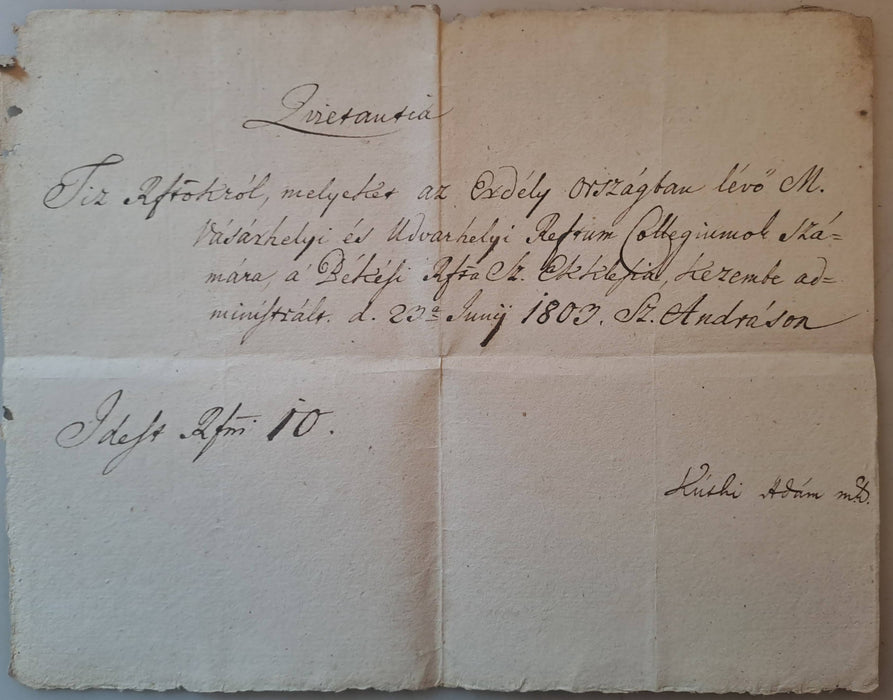 Qvietantia
Tiz Rftokról, melyeket az Erdély országban lévő M.
Vásárhelyi és Udvarhelyi Reftum Collegiumok szá=
mára, a' Békési Rfta Sz. Ekklesia, kezembe ad=
ministrált. d. 23a Junij 1803. Sz. Andráson
Idest Rfm 10.
Küthi Ádám mk.